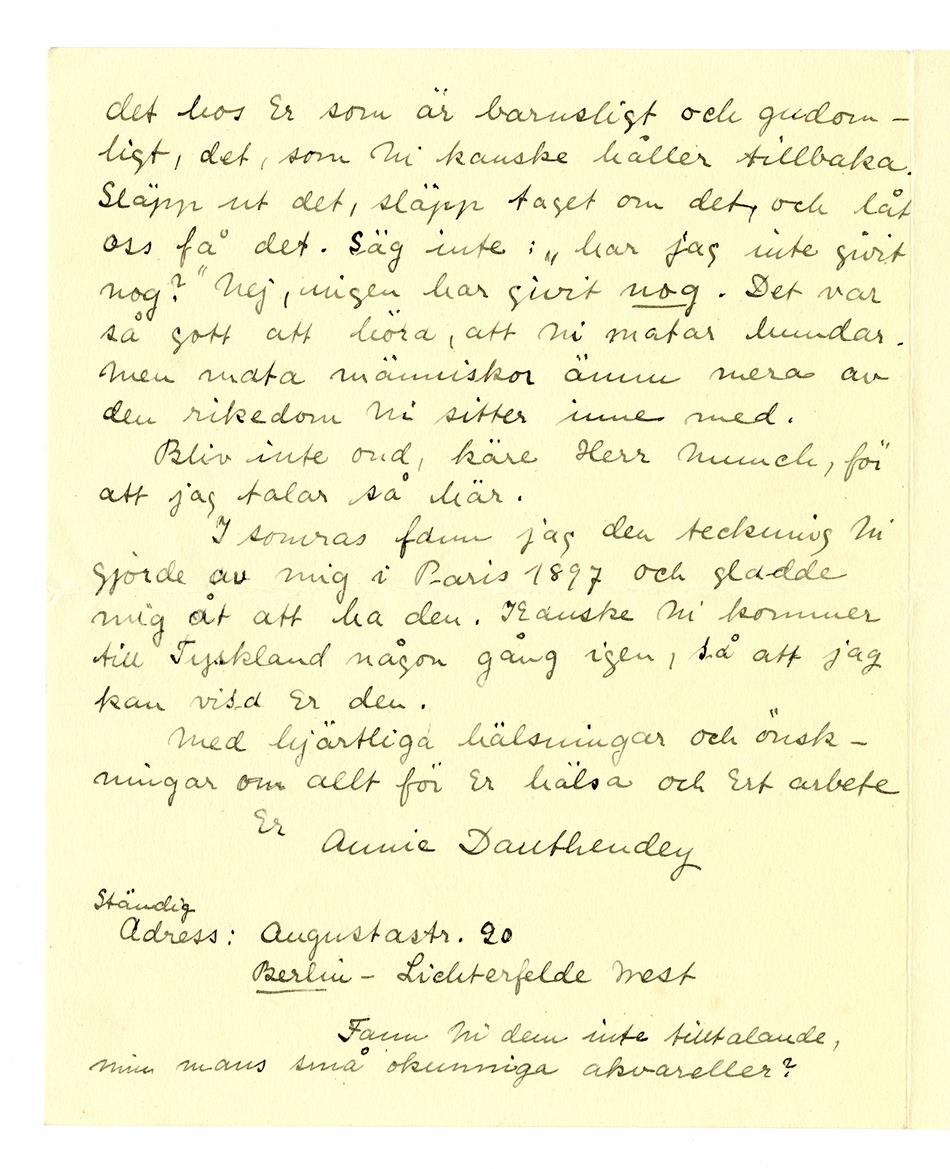 det hos Er som är barnsligt och gudom-
ligt, det, som Ni kanske håller tillbaka.
Släpp ut det, släpp taget om det, och låt
oss få det. Säg inte: „har jag inte givit
nog?” Nej, ingen har givit nog. Det var
så gott att höra, att Ni matar hundar.
Men mata människor ännu mera av
den rikedom Ni sitter inne med.
Bliv inte ond, käre Herr Munch, för
att jag talar så här.
I somras fann jag den teckning Ni
gjorde av mig i Paris 1897 och gladde
mig åt att ha den. Kanske Ni kommer
till Tyskland någon gång igen, så att jag
kan visa Er den.
Med hjärtliga hälsningar och önsk-
ningar om allt för Er hälsa och Ert arbete
Er
Annie Dauthendey
Ständig
Adress: Augustastr. 20
Berlin - Lichterfelde West
Fann Ni dem inte tilltalande,
min mans små okunniga akvareller?